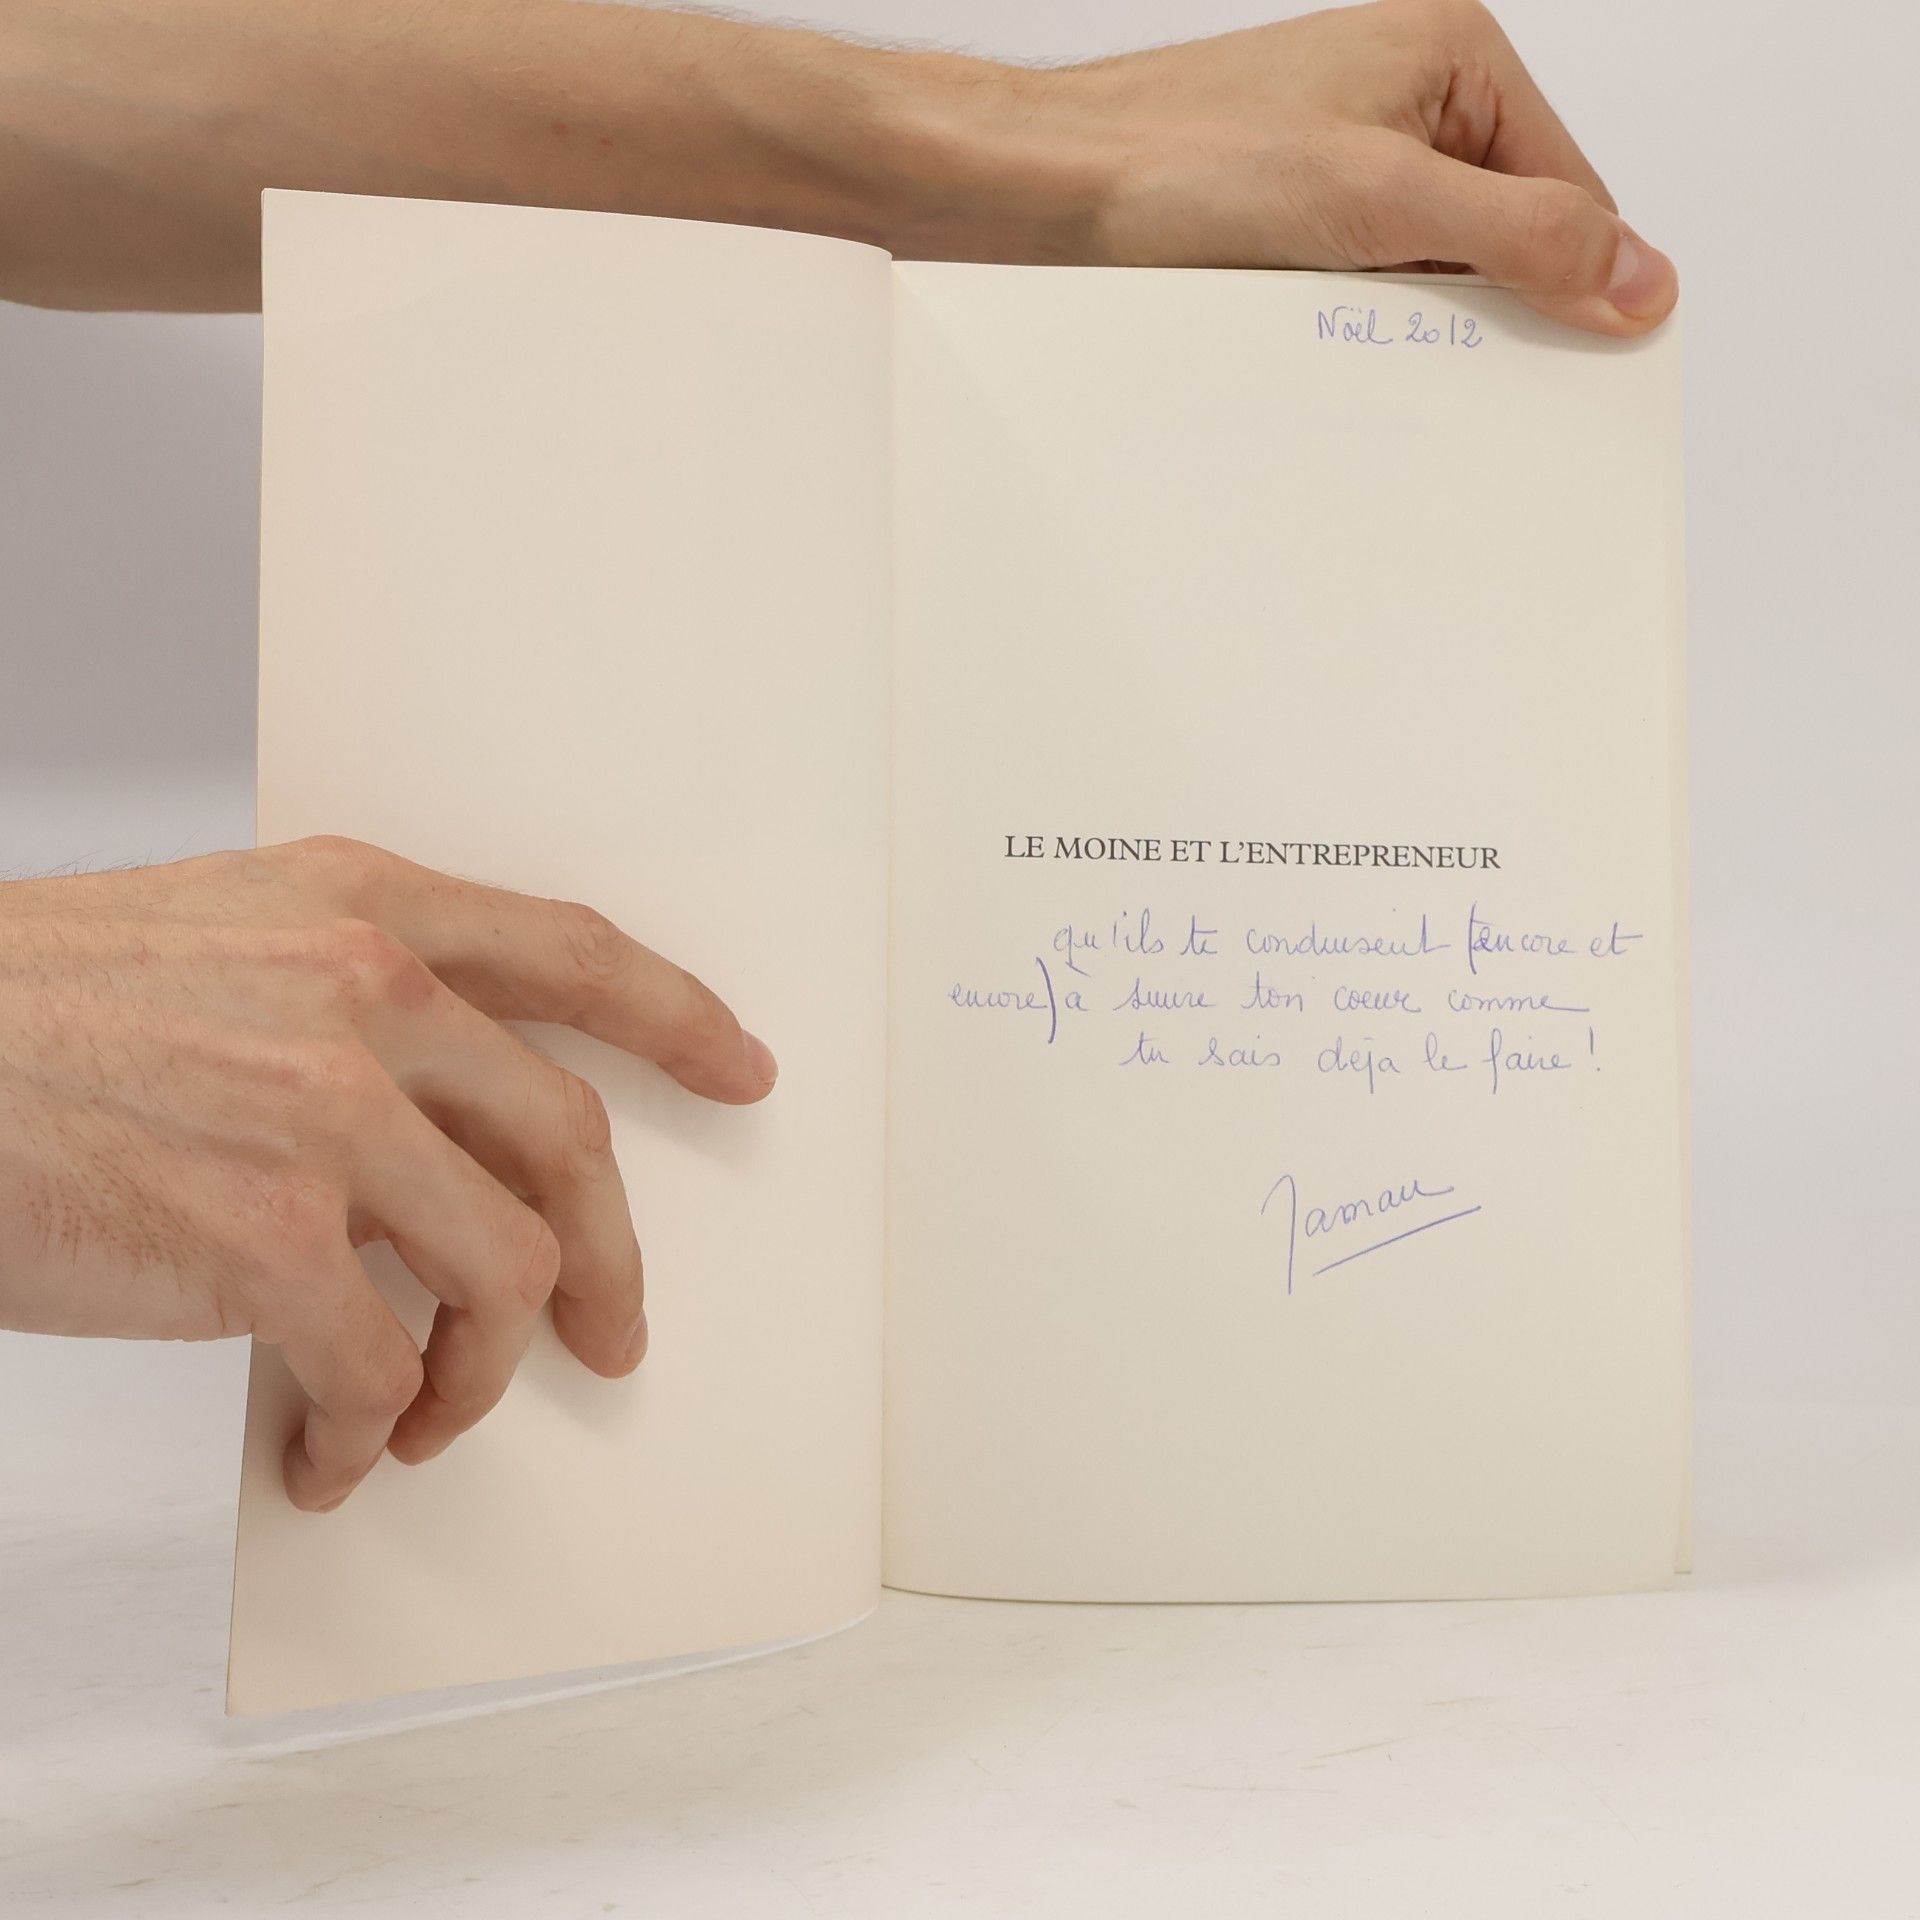 Noël 2012
LE MOINE ET L'ENTREPRENEUR
qu'ils te conduisent (encore et
encore) à suivre ton coeur comme
tu sais déja le faire !